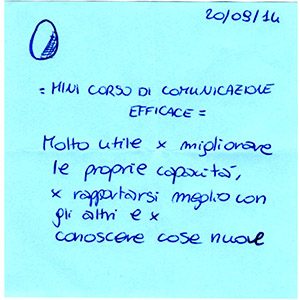 20/09/14
= MINI CORSO DI COMUNICAZIONE
EFFICACE =
Molto utile x migliorare
le proprie capacità,
x rapportarsi meglio con
gli altri e x
conoscere cose nuove